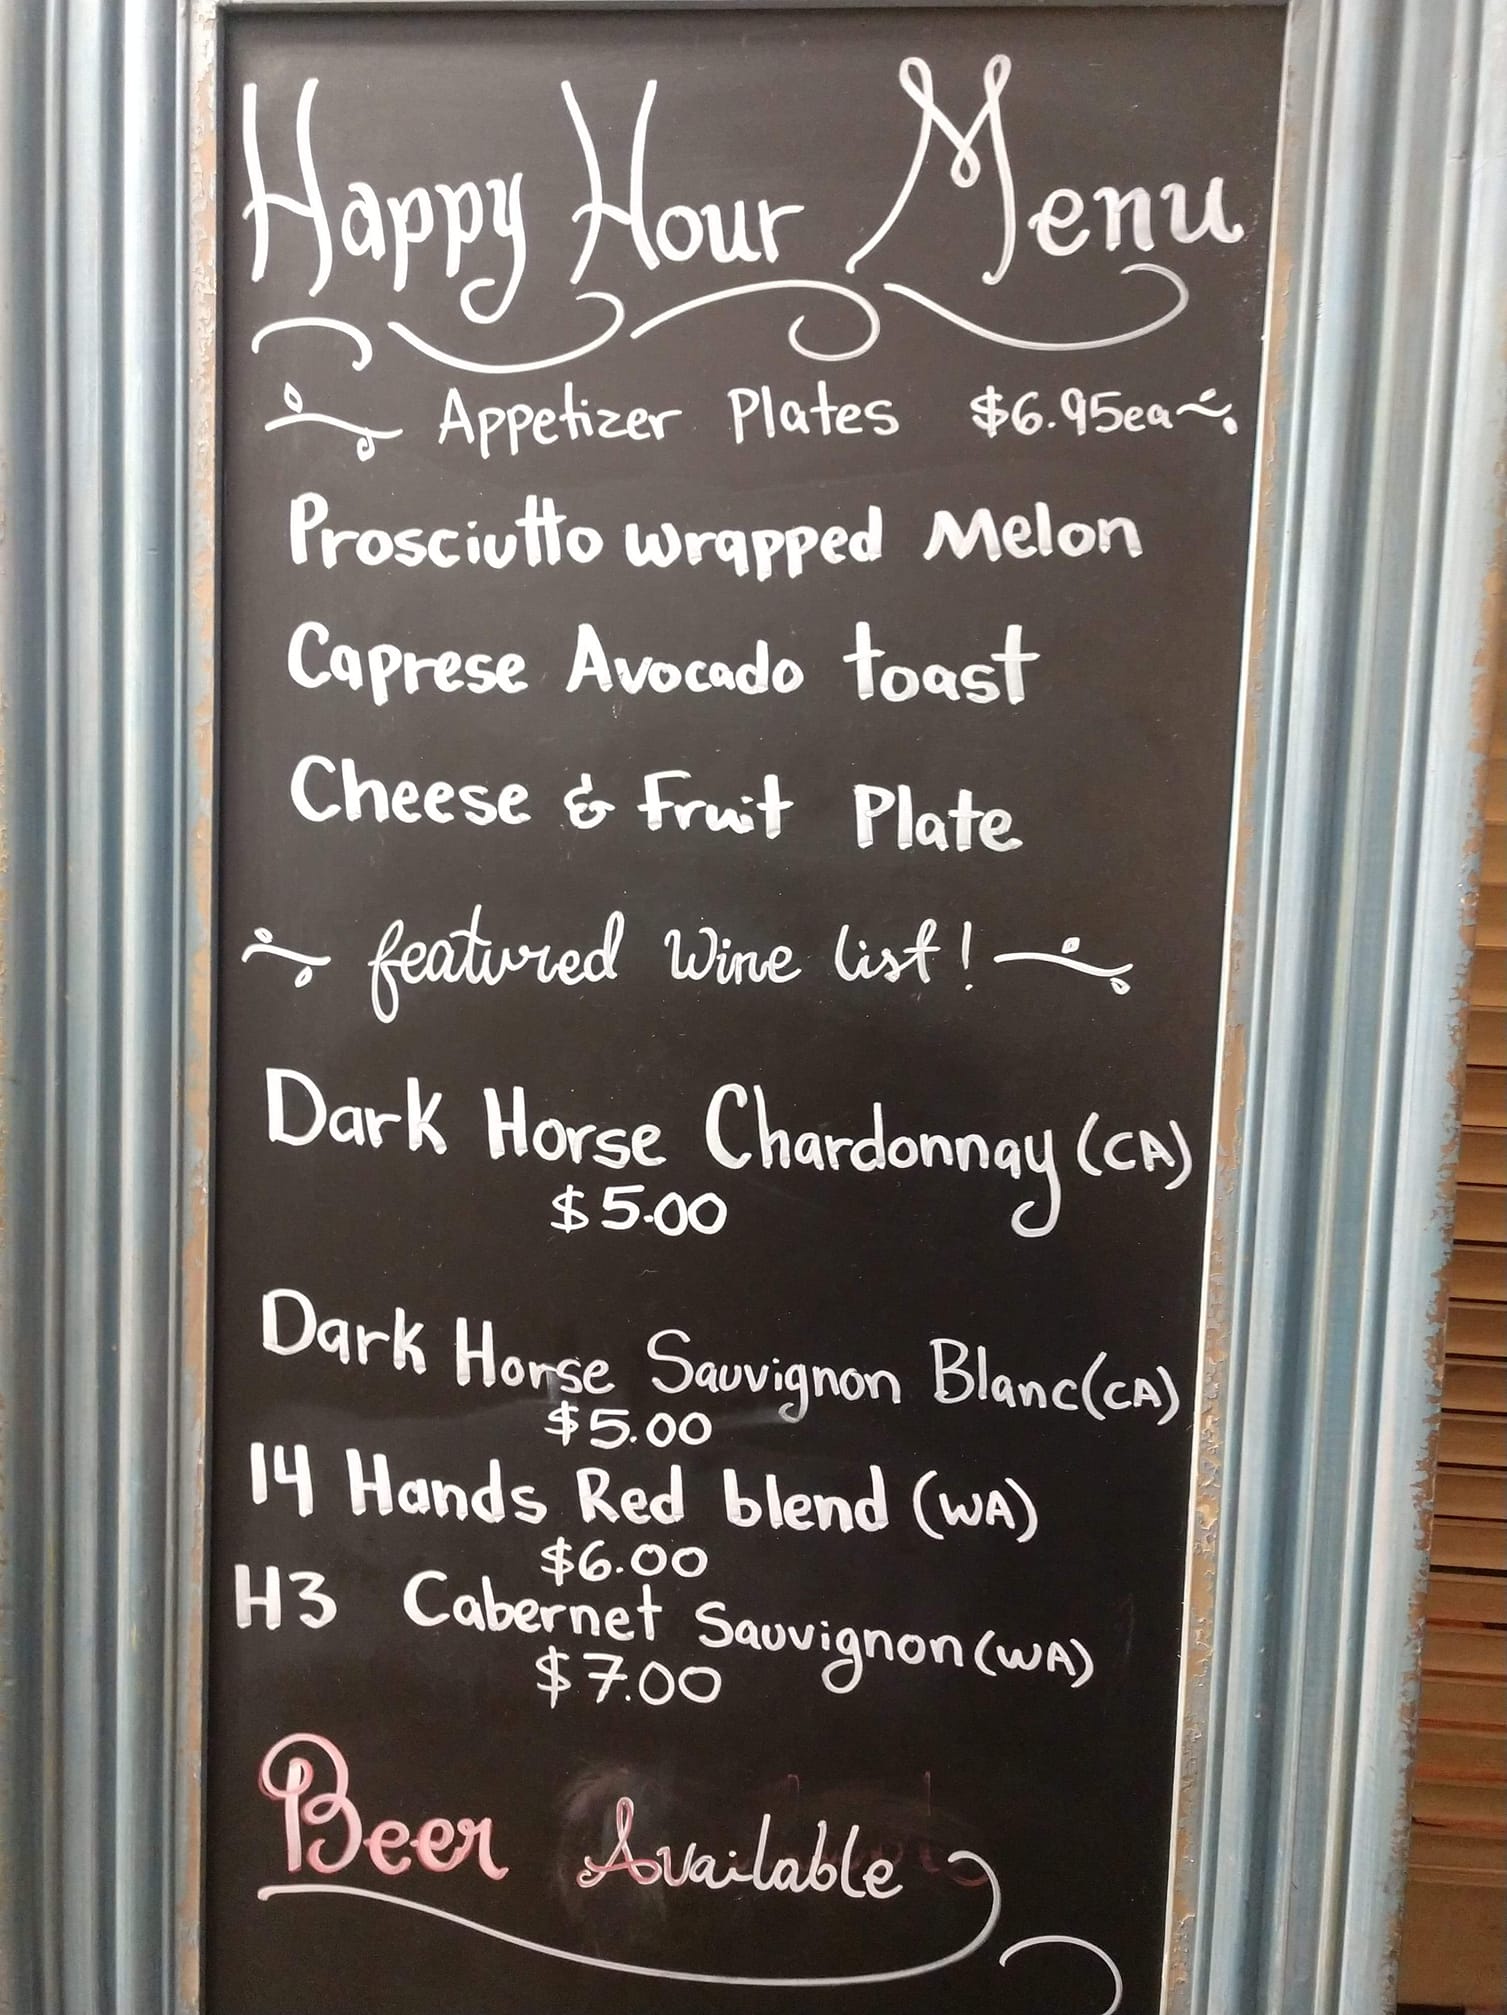 Happy Hour Menu
Appetizer Plates $6.95ea
Prosciutto wrapped Melon
Caprese Avocado toast
Cheese & Fruit Plate
featured wine list!
Dark Horse Chardonnay (CA)
$5.00
Dark Horse Sauvignon Blanc (CA)
$5.00
14 Hands Red blend (WA)
$6.00
H3 Cabernet Sauvignon (WA)
$7.00
Beer Available